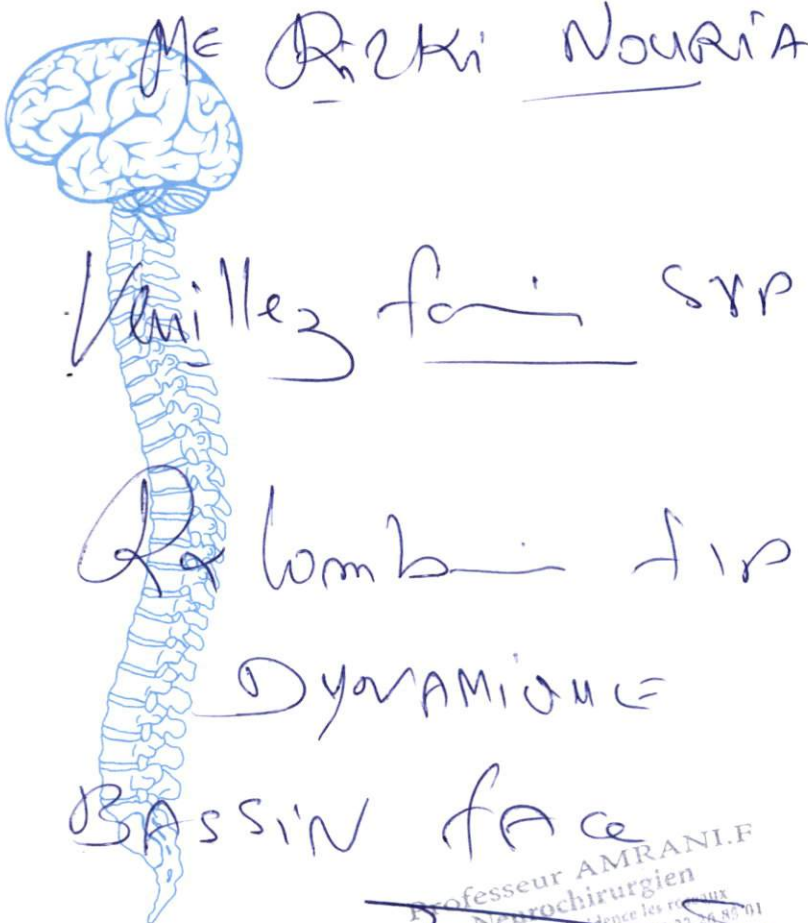 Me Rizki NOURIA
Veuillez faire SVP
Rx lombaire f/p
DYNAMIQUE
BASSIN fACe
Professeur AMRANI.F
Neurochirurgien